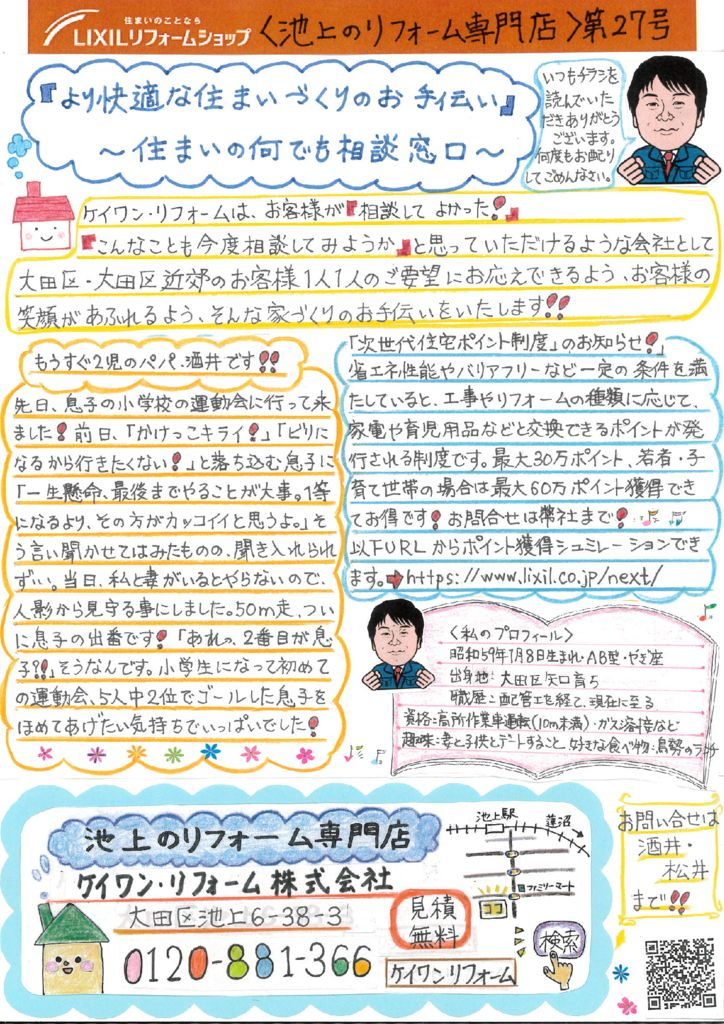 住まいのことなら
LIXILリフォームショップ
〈池上のリフォーム専門店〉第27号
『より快適な住まいづくりのお手伝い』
～住まいの何でも相談窓口～
いつもチラシを
読んでいた
だきありがとう
ございます。
何度もお配り
してごめんなさい。
ケイワン・リフォームは、お客様が『相談してよかった!』
『こんなことも今度相談してみようか』と思っていただけるような会社として
大田区・大田区近郊のお客様1人1人のご要望にお応えできるよう、お客様の
笑顔があふれるよう、そんな家づくりのお手伝いをいたします!!
もうすぐ2児のパパ、酒井です!!
先日、息子の小学校の運動会に行って来
ました!前日、「かけっこキライ!」「ビリに
なるから行きたくない!」と落ち込む息子に
「一生懸命、最後までやることが大事。1等
になるより、その方がカッコイイと思うよ。」そ
う言い聞かせてはみたものの、聞き入れられ
ずい。当日、私と妻がいるとやらないので、
人影から見守る事にしました。50m走、つい
に息子の出番です!「あれっ、2番目が息
子?!」そうなんです。小学生になって初めて
の運動会、5人中2位でゴールした息子を
ほめてあげたい気持ちでいっぱいでした!
「次世代住宅ポイント制度」のお知らせ!
省エネ性能やバリアフリーなど一定の条件を満
たしていると、工事やリフォームの種類に応じて、
家電や育児用品などと交換できるポイントが発
行される制度です。最大30万ポイント、若者・子
育て世帯の場合は最大60万ポイント獲得でき
てお得です!お問合せは弊社まで!
以下URLからポイント獲得シュミレーションでき
ます。➡https://www.lixil.co.jp/next/
〈私のプロフィール〉
昭和59年1月8日生まれ・AB型・やぎ座
出身地:大田区矢口育ち
職歴:配管工を経て、現在に至る
資格:高所作業車運転(10m未満)・ガス溶接など
趣味:妻と子供とデートすること 好きな食べ物:鳥勢の
池上のリフォーム専門店
ケイワン・リフォーム株式会社
大田区池上6-38-3
0120-881-366
見積
無料
ケイワンリフォーム
検索
池上駅
蓮沼
ファミリーマート
ココ
お問い合せは
酒井・
松井
まで!!